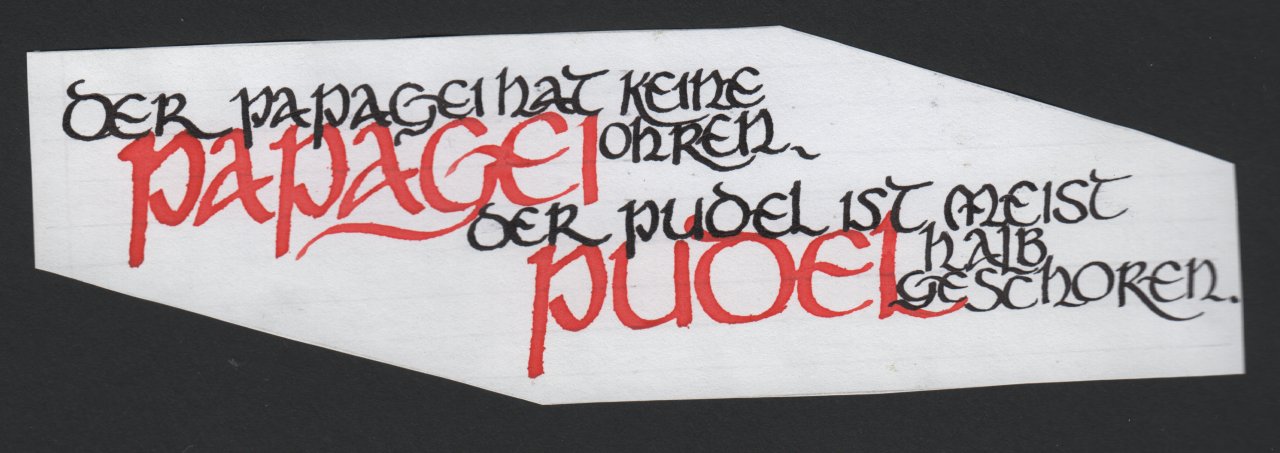 DER PAPAGEI HAT KEINE
OHREN.
PAPAGEI
DER PUDEL IST MEIST
HALB
GESCHOREN.
PUDEL